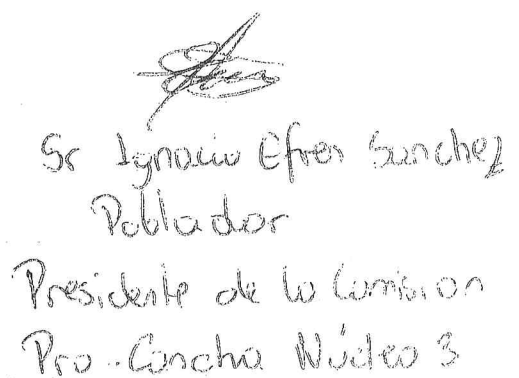 Sr Ignacio Efren Sanchez
Poblador
Presidente de la Comision
Pro-Cancha Núcleo 3